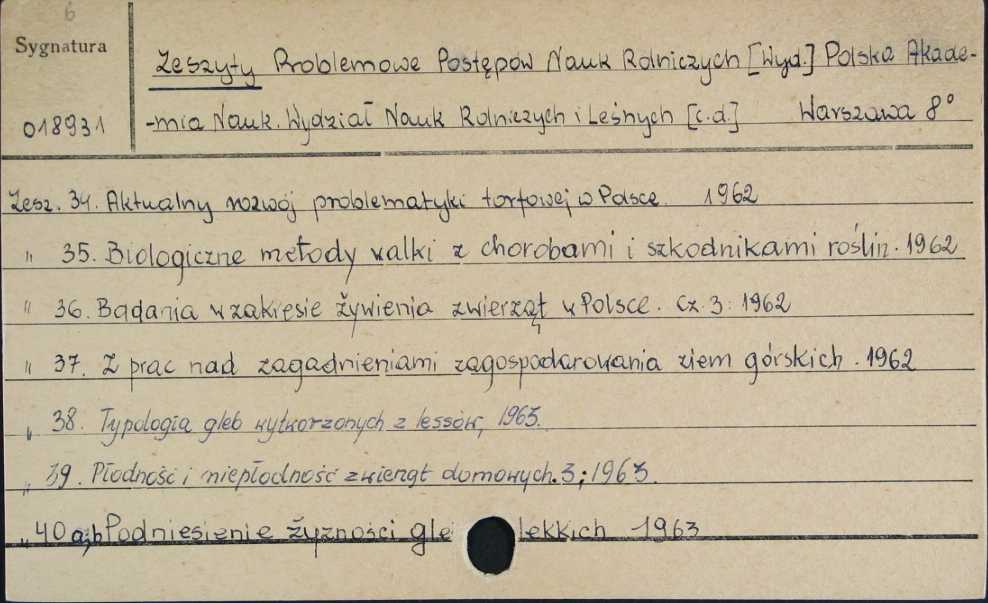 6
Sygnatura
018931
Zeszyty Problemowe Postępów Nauk Rolniczych [Wyd.] Polska Akade-
-mia Nauk. Wydział Nauk Rolniczych i Leśnych [c.d.] Warszawa 8°
Zesz. 34. Aktualny rozwój problematyki torfowej w Polsce. 1962
" 35. Biologiczne metody walki z chorobami i szkodnikami roślin. 1962
" 36. Badania w zakresie żywienia zwierząt w Polsce. Cz. 3: 1962
" 37. Z prac nad zagadnieniami zagospodarowania ziem górskich. 1962
" 38. Typologia gleb wytworzonych z lessów, 1963.
" 39. Płodność i niepłodność zwierząt domowych. 3; 1963.
" 40 a;b Podniesienie żyzności gle lekkich 1963